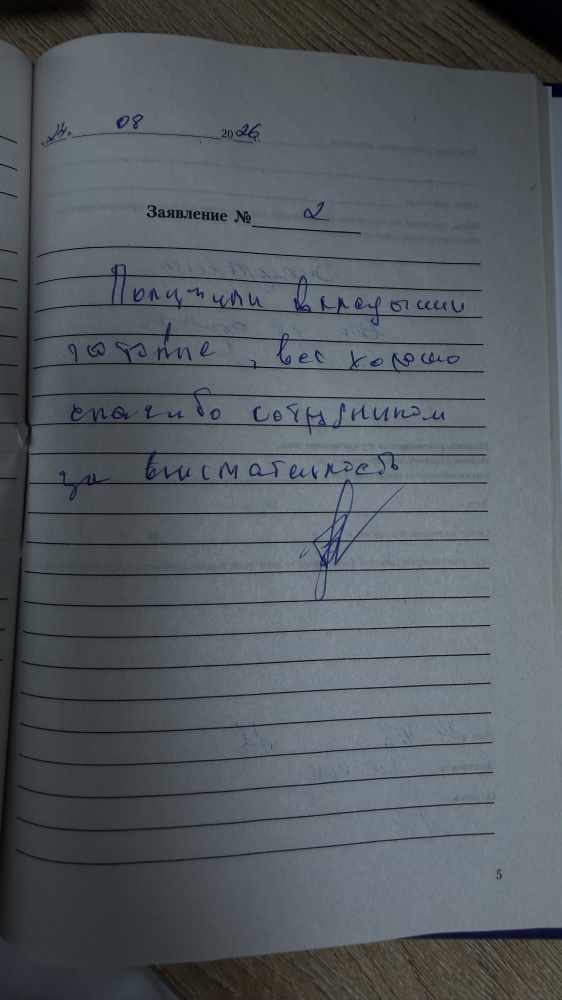 24. 08 2026
Заявление № 2
Получили вкладыши
готовые, вес хорошо
спасибо сотрудником
за внисмателность
5